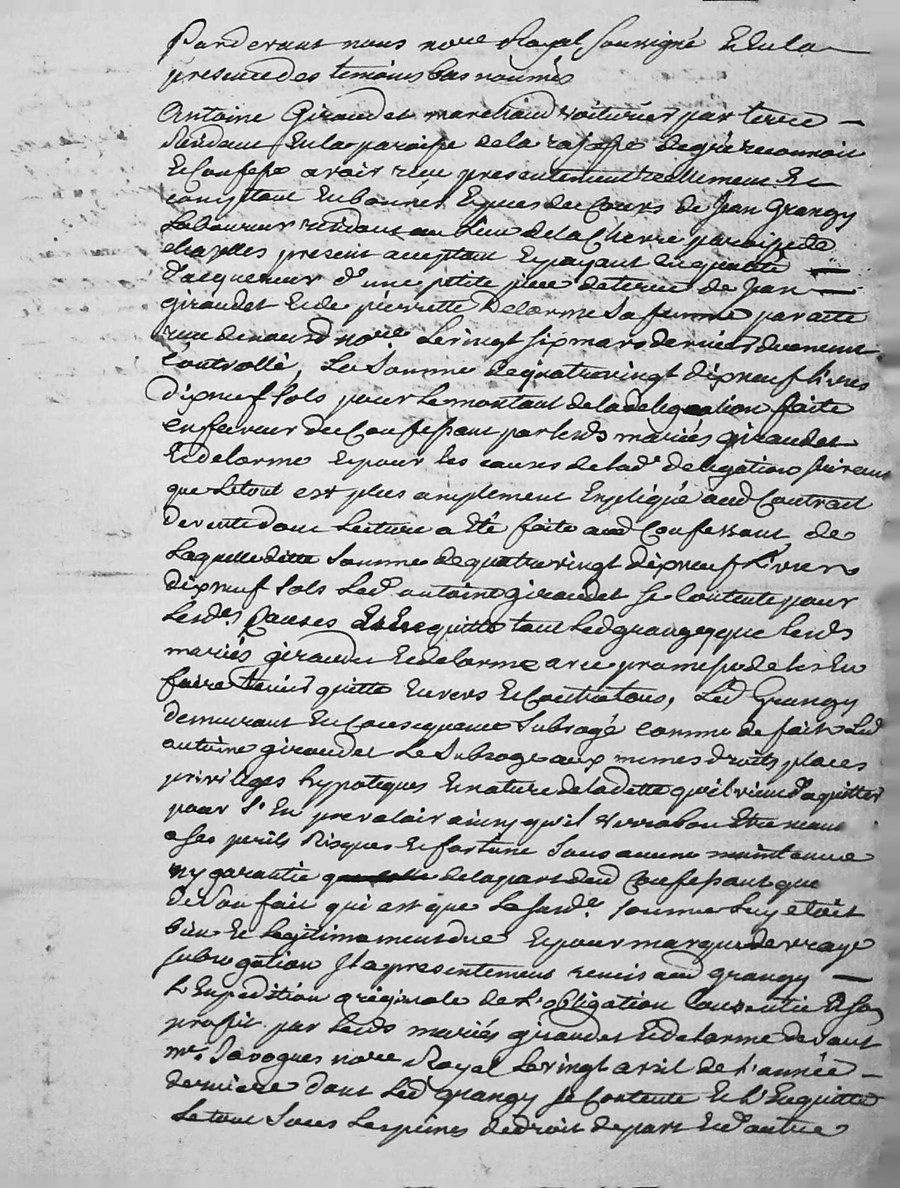 Pardevant nous no.re Royal soussigné Et en la
presence des temoins bas nommés
Antoine Giraudet marchand voiturier par terre
Residant En la paroisse de la rajasse de gré reconnoit
Et Confesse avoir reçu presentement reellement Et
comptant En bonnes Especes de Cours de Jean Grangy
Laboureur residant au Lieu de la Cherre paroisse de
chazelles present acceptant Et payant En qualité
d'acquereur d'une petite piece de terre de Jean
giraudet Et de pierrette Delorme sa femme par acte
reçu de no.re Le vingt six mars dernier duement
Controllé, La Somme de quatre vingt dix neuf livres
dix neuf sols pour Le montant de la delegation faite
en faveur du Confessant par lesds mariés giraudet
Et delorme Et pour les causes de lad.e delegation suivant
que Le tout est plus amplement Expliqué aud Contrat
de vente dont Lecture a Eté faite aud Confessant, de
Laquelle ditte Somme de quatre vingt dix neuf Livres
dix neuf sols Led antoine giraudet se Contente pour
Lesd.es Causes Et En quitte tant Led grangy que lesds
mariés giraudet Et delorme avec promesse de les En
faire tenir quitte Envers Et Contre tous, Led Grangy
demeurant En Consequence Subrogé comme de fait Led
antoine giraudet Le Subroge aux memes droits places
privileges hypoteques Et nature de la dette qu'il vient d'aquitter
pour s'En prevaloir ainsy qu'il verra bon Etre
a ses perils Risques Et fortune sans aucune maintenue
ny garantie de la part dud Confessant que
de son fait qui est que La susd.e somme Luy etoit
bien Et Legitimement due Et pour marque de vraye
subrogation Il a presentement remis aud grangy
L'Expedition originale de L'obligation Consentie a son
profit par lesds mariés giraudet Et delorme devant
m.e no.re Royal Le vingt avril de l'année
derniere dont Led grangy se Contente Et l'En quitte
Le tout Sous Les peines de droit de part Et d'autre